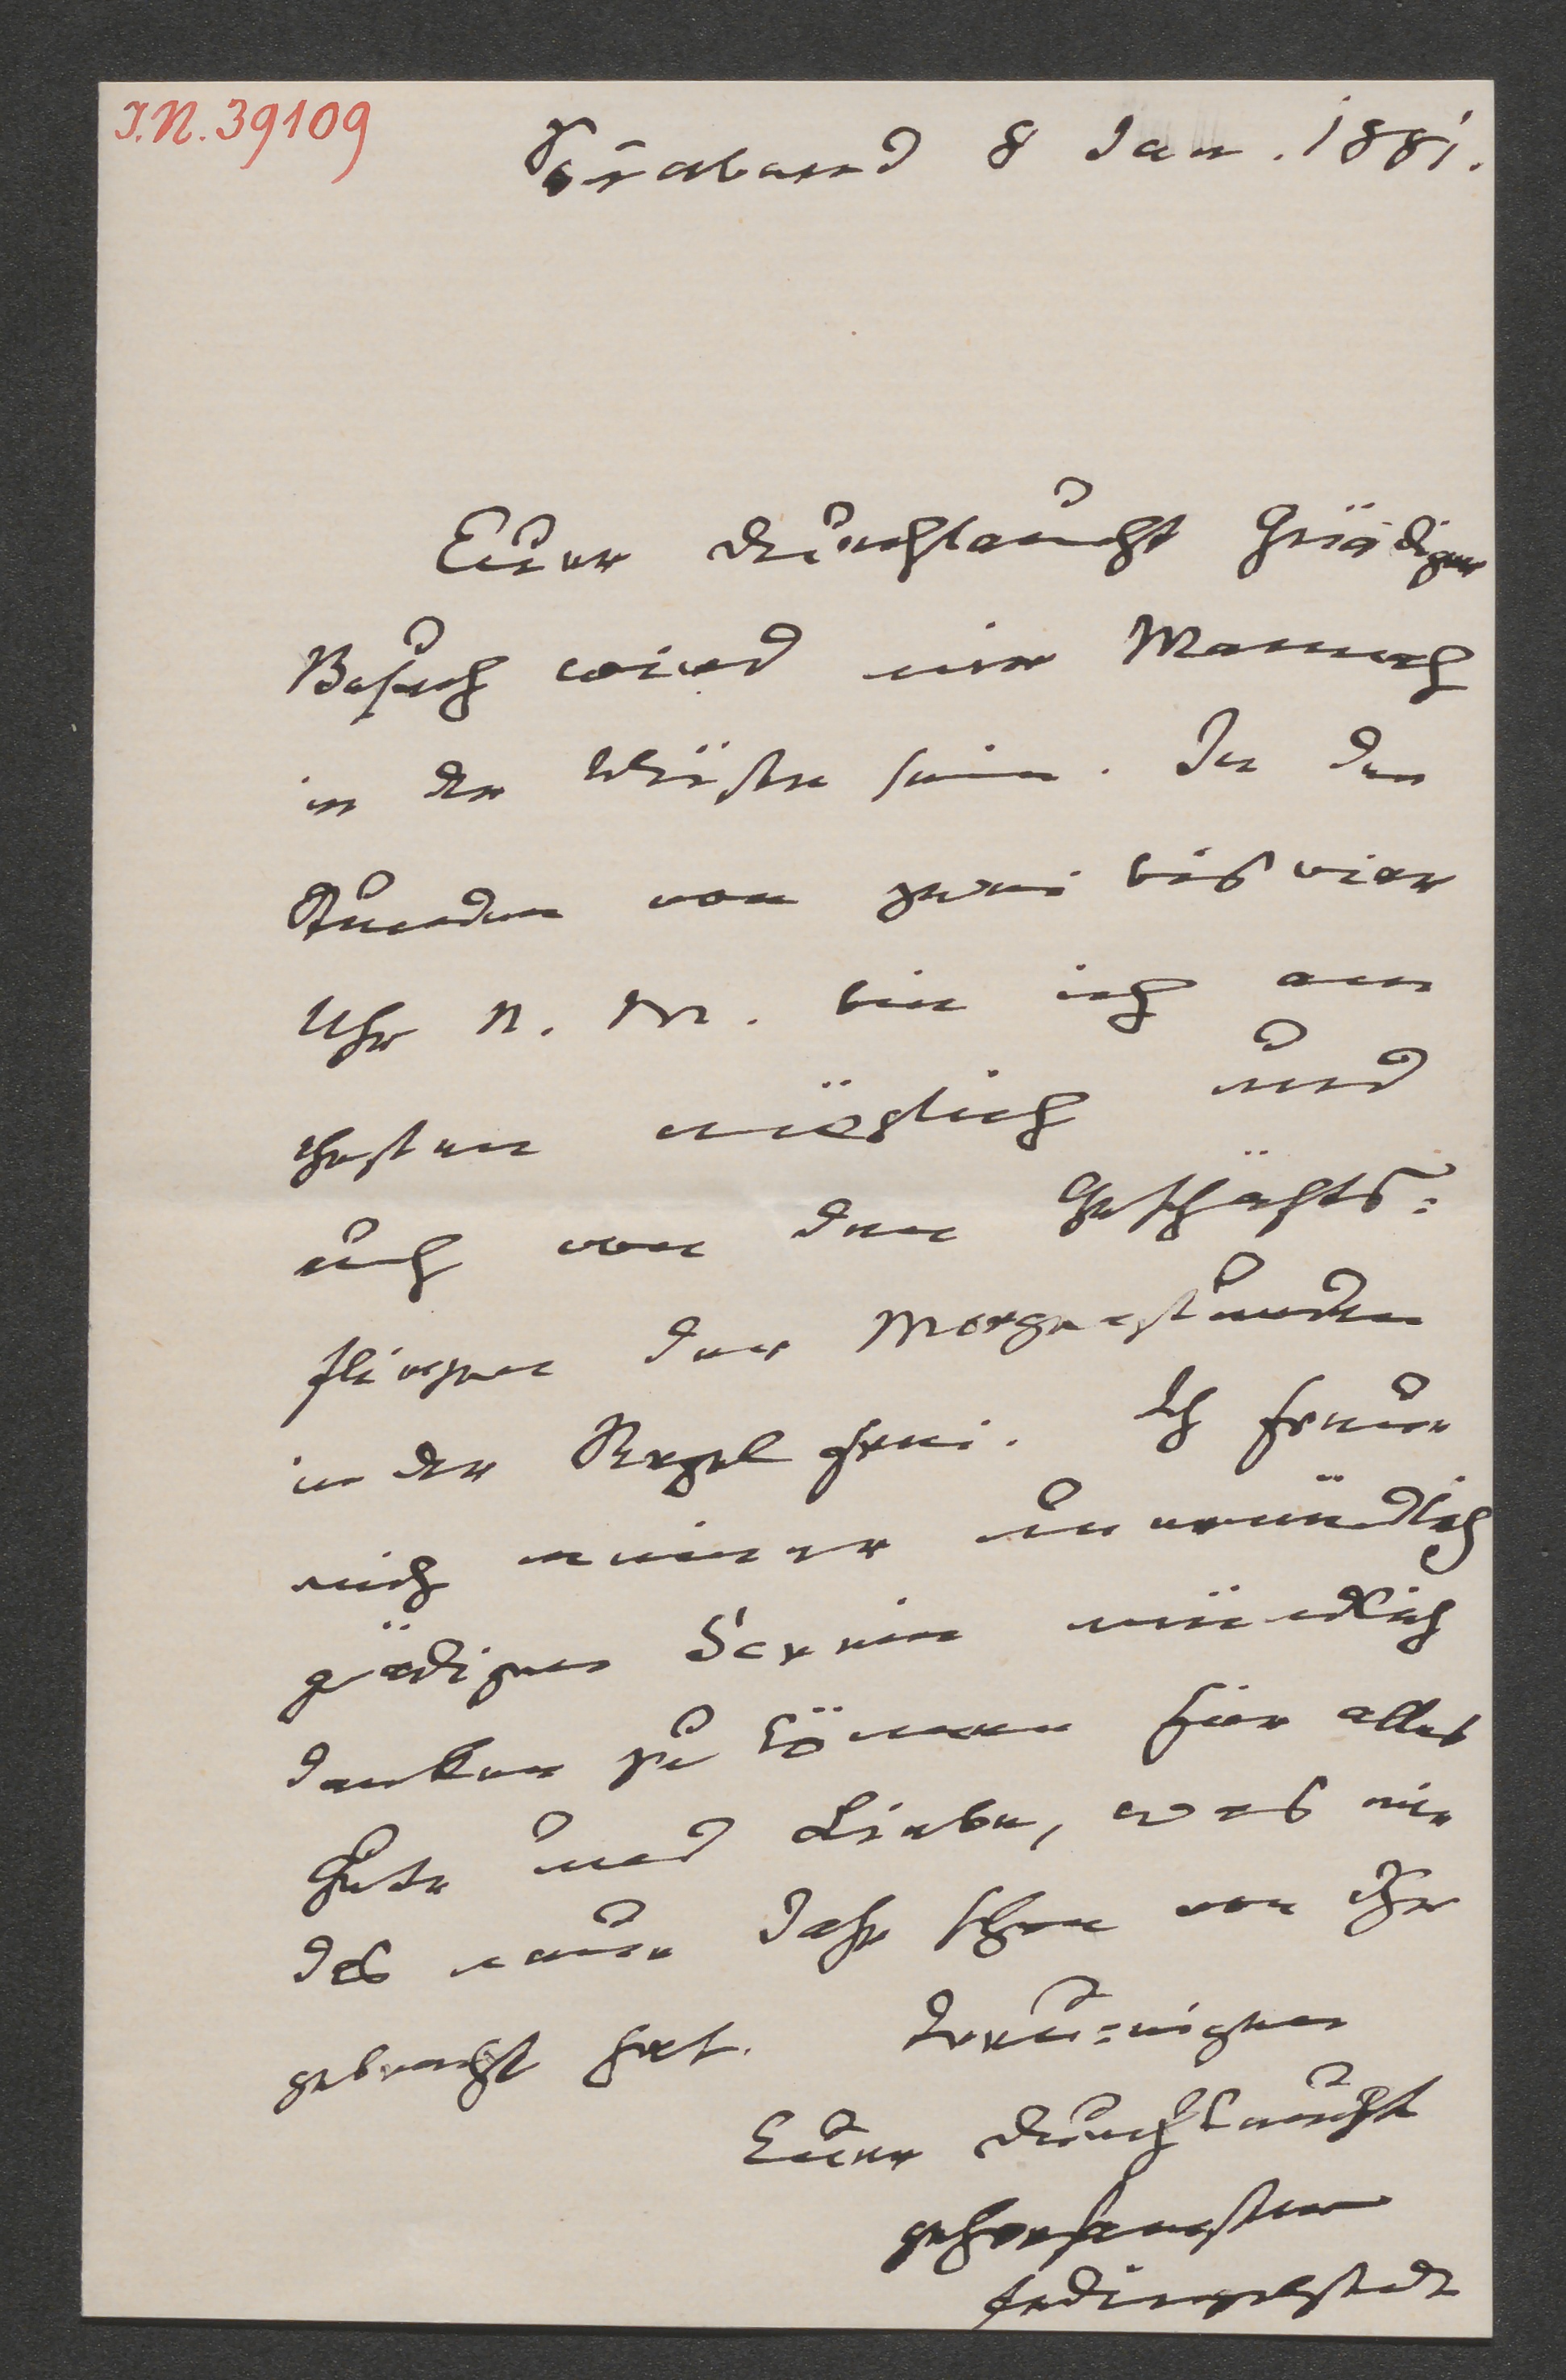 I.N. 39109
Sonnabend 8 Jan. 1881.
Euer Durchlaucht gnädiger
Besuch wird mir Mannah
in der Wüste sein. In den
Stunden von zwei bis vier
Uhr N. M. bin ich am
ehesten möglich und
auch von den Geschäfts-
der Morgenstunden
in der Regel frei. Ich freue
mich meiner unermüdlich
gnädigen Fürstin mündlich
danken zu können für alles
Gute und Liebe, was mir
das neue Jahr schon von Ihr
gebracht hat. Treu-eigner
Euer Durchlaucht
gehorsamster
FvDingelstedt